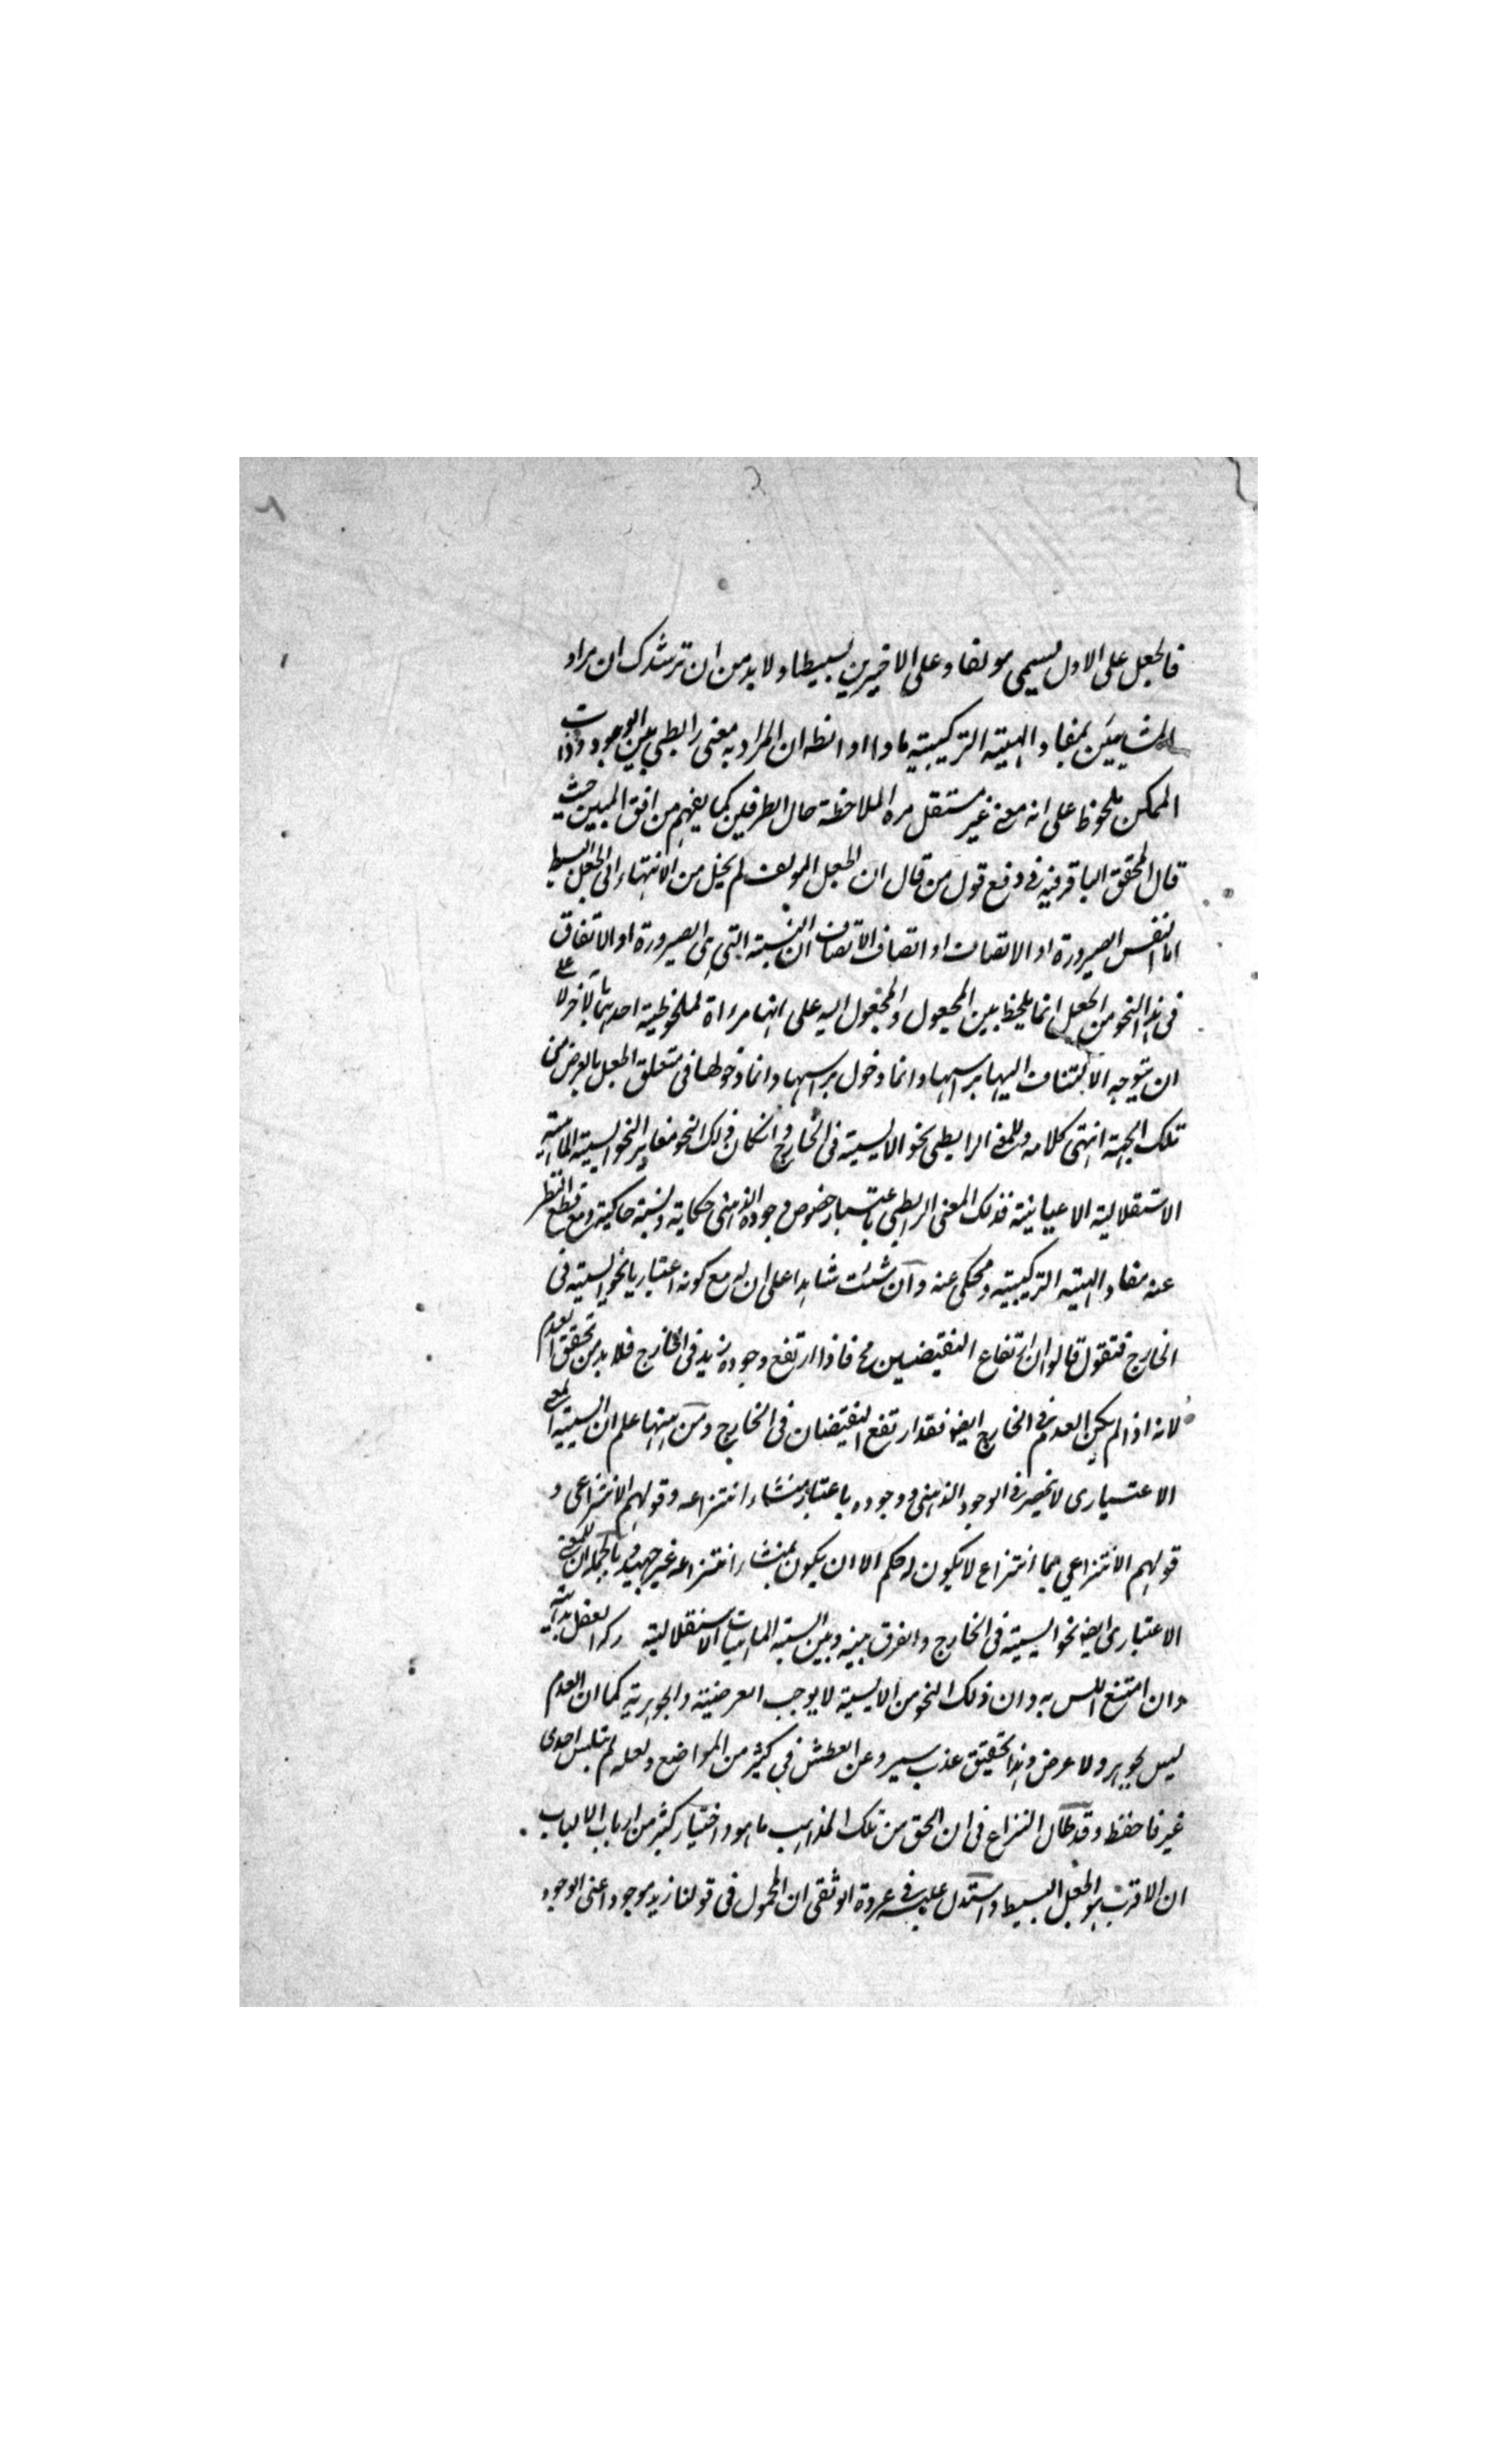 فالجعل على الاول يسمى مولفا وعلى الاخيرين بسيطا ولا بد من ان نرشدك ان مراد
المشايئين بمفاد الهيئة التركيبية ماذا اذ انظر ان المراد به معنى رابطى بين الوجود وذات
الممكن ملحوظ على انه معنى غير مستقل مراة لملاحظة حال الطرفين كما يفهم من افق المبين حيث
قال المحقق الباقر فيه فى دفع قول من قال ان الجعل المولف لم يخل من الانتهاء الى الجعل البسيط
اما لنفس الصيرورة او الاتصاف او اتصاف الاتصاف ان النسبة التى هى الصيرورة او الاتفاق
فى هذا النحو من الجعل انما يلحظ بين المجعول والمجعول اليه على انها مراة لملحوظية احديهما بالاخر لا على
ان يتوجه الالتفات اليها براسها وانما دخول براسها وانما دخولها فى متعلق الجعل بالعرض من
تلك الجهة انتهى كلامه وللمعنى الرابطى نحو الايسية فى الخارج وان كان ذلك النحو مغاير النحو ايسية الماهية
الاستقلالية الاعيانية فذلك المعنى الرابطى باعتبار خصوص وجوده الذهنى حكاية ونسبة حاكية ومع قطع النظر
عنه مفاد الهيئة التركيبية ومحكى عنه وان شئت شاهدا على ان له مع كونه اعتباريا نحو ايسية فى
الخارج فنقول قالوا ان ارتفاع النقيضين مح فاذا ارتفع وجود زيد فى الخارج فلا بد من تحقق العدم
لانه اذا لم يكن العدم فى الخارج ايضا فقد ارتفع النقيضان فى الخارج ومن ههنا علم ان ايسية المعنى
الاعتبارى لا ينحصر فى الوجود الذهنى ووجوده باعتبار منشاء انتزاعه وقولهم الانتزاعى و
قولهم الانتزاعى بما انتزاع لا يكون له حكم الا ان يكون بمنشاء انتزاعه غير جهيد فى بالجملة ان للمعنى
الاعتبارى ايضا نحو ايسية فى الخارج والفرق بينه وبين ايسية الماهيات الاستقلالية ركه العقل بداهية
وان امتنع اللس به وان ذلك النحو من الايسية لا يوجب العرضية والجوهرية كما ان العدم
ليس بجوهر ولا عرض وهذا تحقيق عذب يسير وعن العطش فى كثير من المواضع ولعله لم يتلبس احدى
غيرنا حفظ وقد طال النزاع فى ان الحق من تلك المذاهب ما هو واختيار كثير من ارباب الالباب
ان الاقرب هو الجعل البسيط واستدل عليه فى عروة الوثقى ان المحمول فى قولنا زيد موجود اعنى الوجود